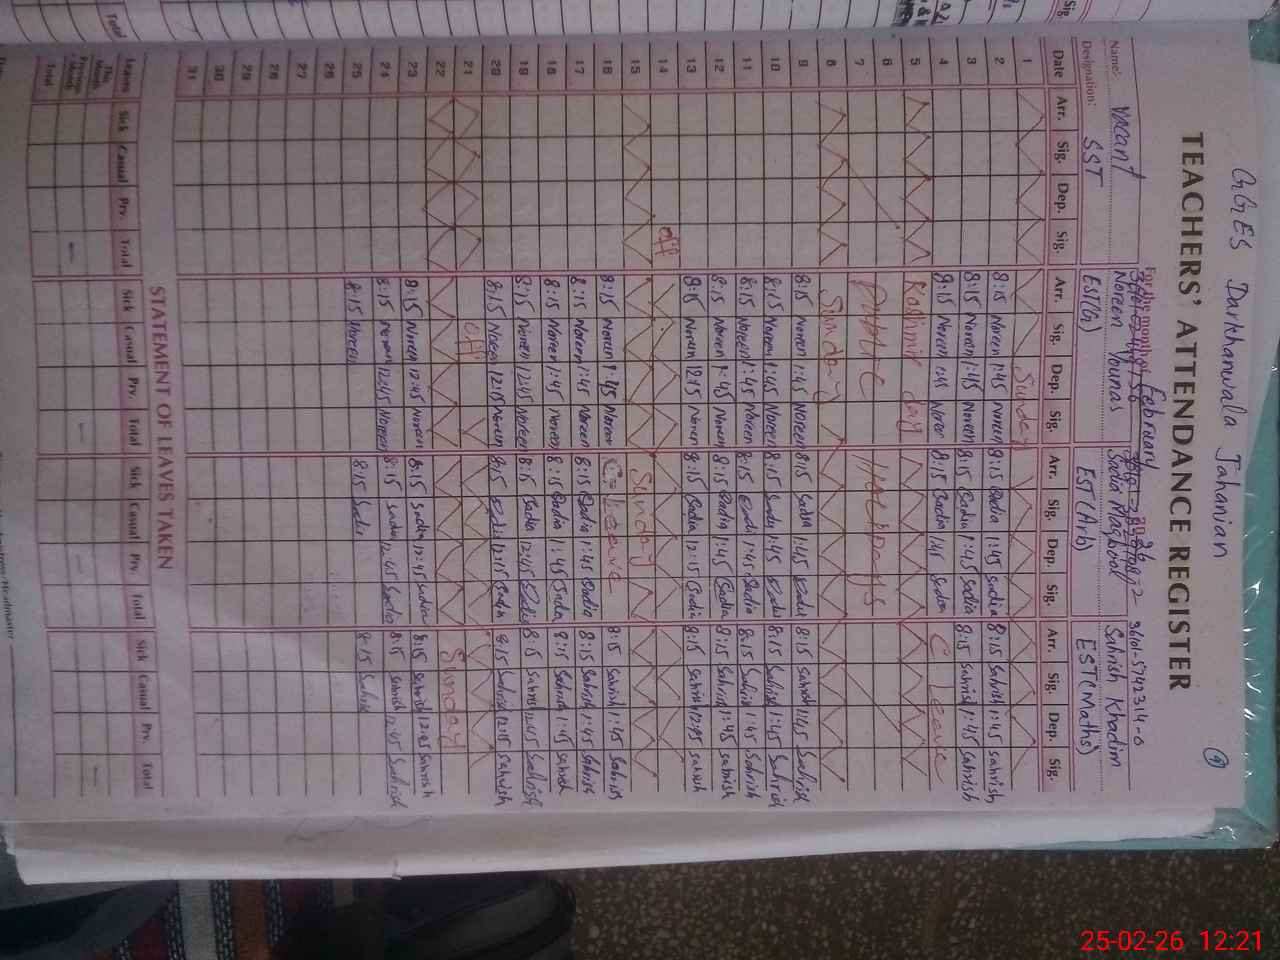 GGES Darkhanwala Jahanian
TEACHERS' ATTENDANCE REGISTER
For the month of February 26
Name: Vacant Noreen Younas Sadia Maqbool Sahrish Khadim
Designation: SST EST(G) EST(Arb) EST(Maths)
Date Arr. Sig. Dep. Sig. Arr. Sig. Dep. Sig. Arr. Sig. Dep. Sig. Arr. Sig. Dep. Sig.
1 Sunday
2 8:15 Noreen 1:45 Noreen 8:15 Sadia 1:45 Sadia 8:15 Sahrish 1:45 Sahrish
3 8:15 Noreen 1:45 Noreen 8:15 Sadia 1:45 Sadia 8:15 Sahrish 1:45 Sahrish
4 8:15 Noreen 1:45 Noreen 8:15 Sadia 1:45 Sadia C Leave
5 Kashmir day
6
7 Public Holidays
8 Sunday
9 8:15 Noreen 1:45 Noreen 8:15 Sadia 1:45 Sadia 8:15 Sahrish 1:45 Sahrish
10 8:15 Noreen 1:45 Noreen 8:15 Sadia 1:45 Sadia 8:15 Sahrish 1:45 Sahrish
11 8:15 Noreen 1:45 Noreen 8:15 Sadia 1:45 Sadia 8:15 Sahrish 1:45 Sahrish
12 8:15 Noreen 1:45 Noreen 8:15 Sadia 1:45 Sadia 8:15 Sahrish 1:45 Sahrish
13 8:15 Noreen 12:15 Noreen 8:15 Sadia 12:15 Sadia 8:15 Sahrish Sahrish
14 off
15 Sunday
16 8:15 Noreen 1:45 Noreen C-Leave 8:15 Sahrish 1:45 Sahrish
17 8:15 Noreen 1:45 Noreen 8:15 Sadia 1:45 Sadia 8:15 Sahrish 1:45 Sahrish
18 8:15 Noreen 1:45 Noreen 8:15 Sadia 1:45 Sadia 8:15 Sahrish 1:45 Sahrish
19 8:15 Noreen 12:45 Noreen 8:15 Sadia 12:45 Sadia 8:15 Sahrish 12:45 Sahrish
20 8:15 Noreen 12:15 Noreen 8:15 Sadia 12:15 Sadia 8:15 Sahrish 12:15 Sahrish
21 off
22 Sunday
23 8:15 Noreen 12:45 Noreen 8:15 Sadia 12:45 Sadia 8:15 Sahrish 12:45 Sahrish
24 8:15 Noreen 12:45 Noreen 8:15 Sadia 12:45 Sadia 8:15 Sahrish 12:45 Sahrish
25 8:15 Noreen 8:15 Sadia 8:15 Sahrish
26
27
28
29
30
31
STATEMENT OF LEAVES TAKEN
Leaves Sick Casual Prv. Total Sick Casual Prv. Total Sick Casual Prv. Total Sick Casual Prv. Total
This Month
Previous Month
Total
25-02-26 12:21